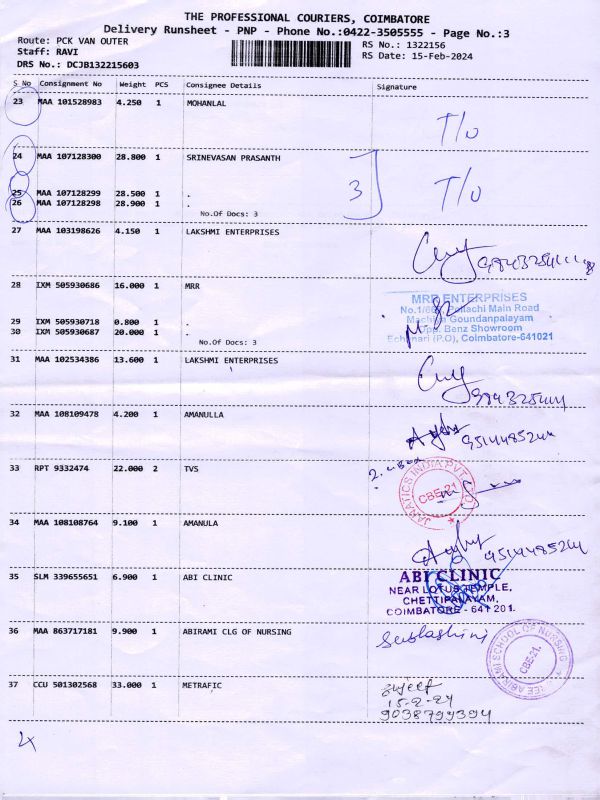 THE PROFESSIONAL COURIERS, COIMBATORE
Delivery Runsheet - PNP - Phone No.:0422-3505555 - Page No.:3
Route: PCK VAN OUTER
Staff: RAVI
DRS No.: DCJB132215603
RS No.: 1322156
RS Date: 15-Feb-2024
S No Consignment No Weight PCS Consignee Details Signature
23 MAA 101528983 4.250 1 MOHANLAL
T/o
24 MAA 107128300 28.800 1 SRINEVASAN PRASANTH
3 T/o
25 MAA 107128299 28.500 1 .
26 MAA 107128298 28.900 1 .
No.Of Docs: 3
27 MAA 103198626 4.150 1 LAKSHMI ENTERPRISES
28 IXM 505930686 16.000 1 MRR
MRR ENTERPRISES
Pollachi Main Road
Goundanpalayam
Opp. Benz Showroom
(P.O), Coimbatore-641021
29 IXM 505930718 0.800 1 .
30 IXM 505930687 20.000 1 .
No.Of Docs: 3
31 MAA 102534386 13.600 1 LAKSHMI ENTERPRISES
32 MAA 108109478 4.200 1 AMANULLA
33 RPT 9332474 22.000 2 TVS
JANATICS INDIA PVT.
CBE-21
34 MAA 108108764 9.100 1 AMANULA
35 SLM 339655651 6.900 1 ABI CLINIC
ABI CLINIC
NEAR LOTUS TEMPLE,
CHETTIPALAYAM,
COIMBATORE - 641 201.
36 MAA 863717181 9.900 1 ABIRAMI CLG OF NURSING
ABIRAMI SCHOOL OF NURSING
CBE-21.
37 CCU 501302568 33.000 1 METRAFIC
15-2-24
9038799394